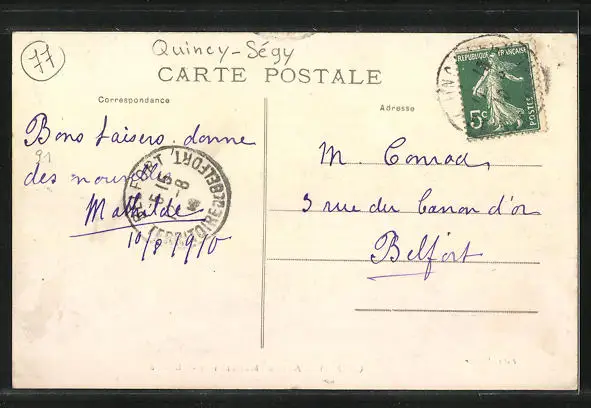 77
Quincy-Ségy
CARTE POSTALE
Correspondance
Adresse
REPUBLIQUE FRANÇAISE
5c
POSTES
Bons baisers. donne
91
des nouvelle
Mathilde
10/8/1910
BELFORT
6-15
-8
TERRITOIRE DE BELFORT
M. Conrad,
3 rue du Canon d'or
Belfort